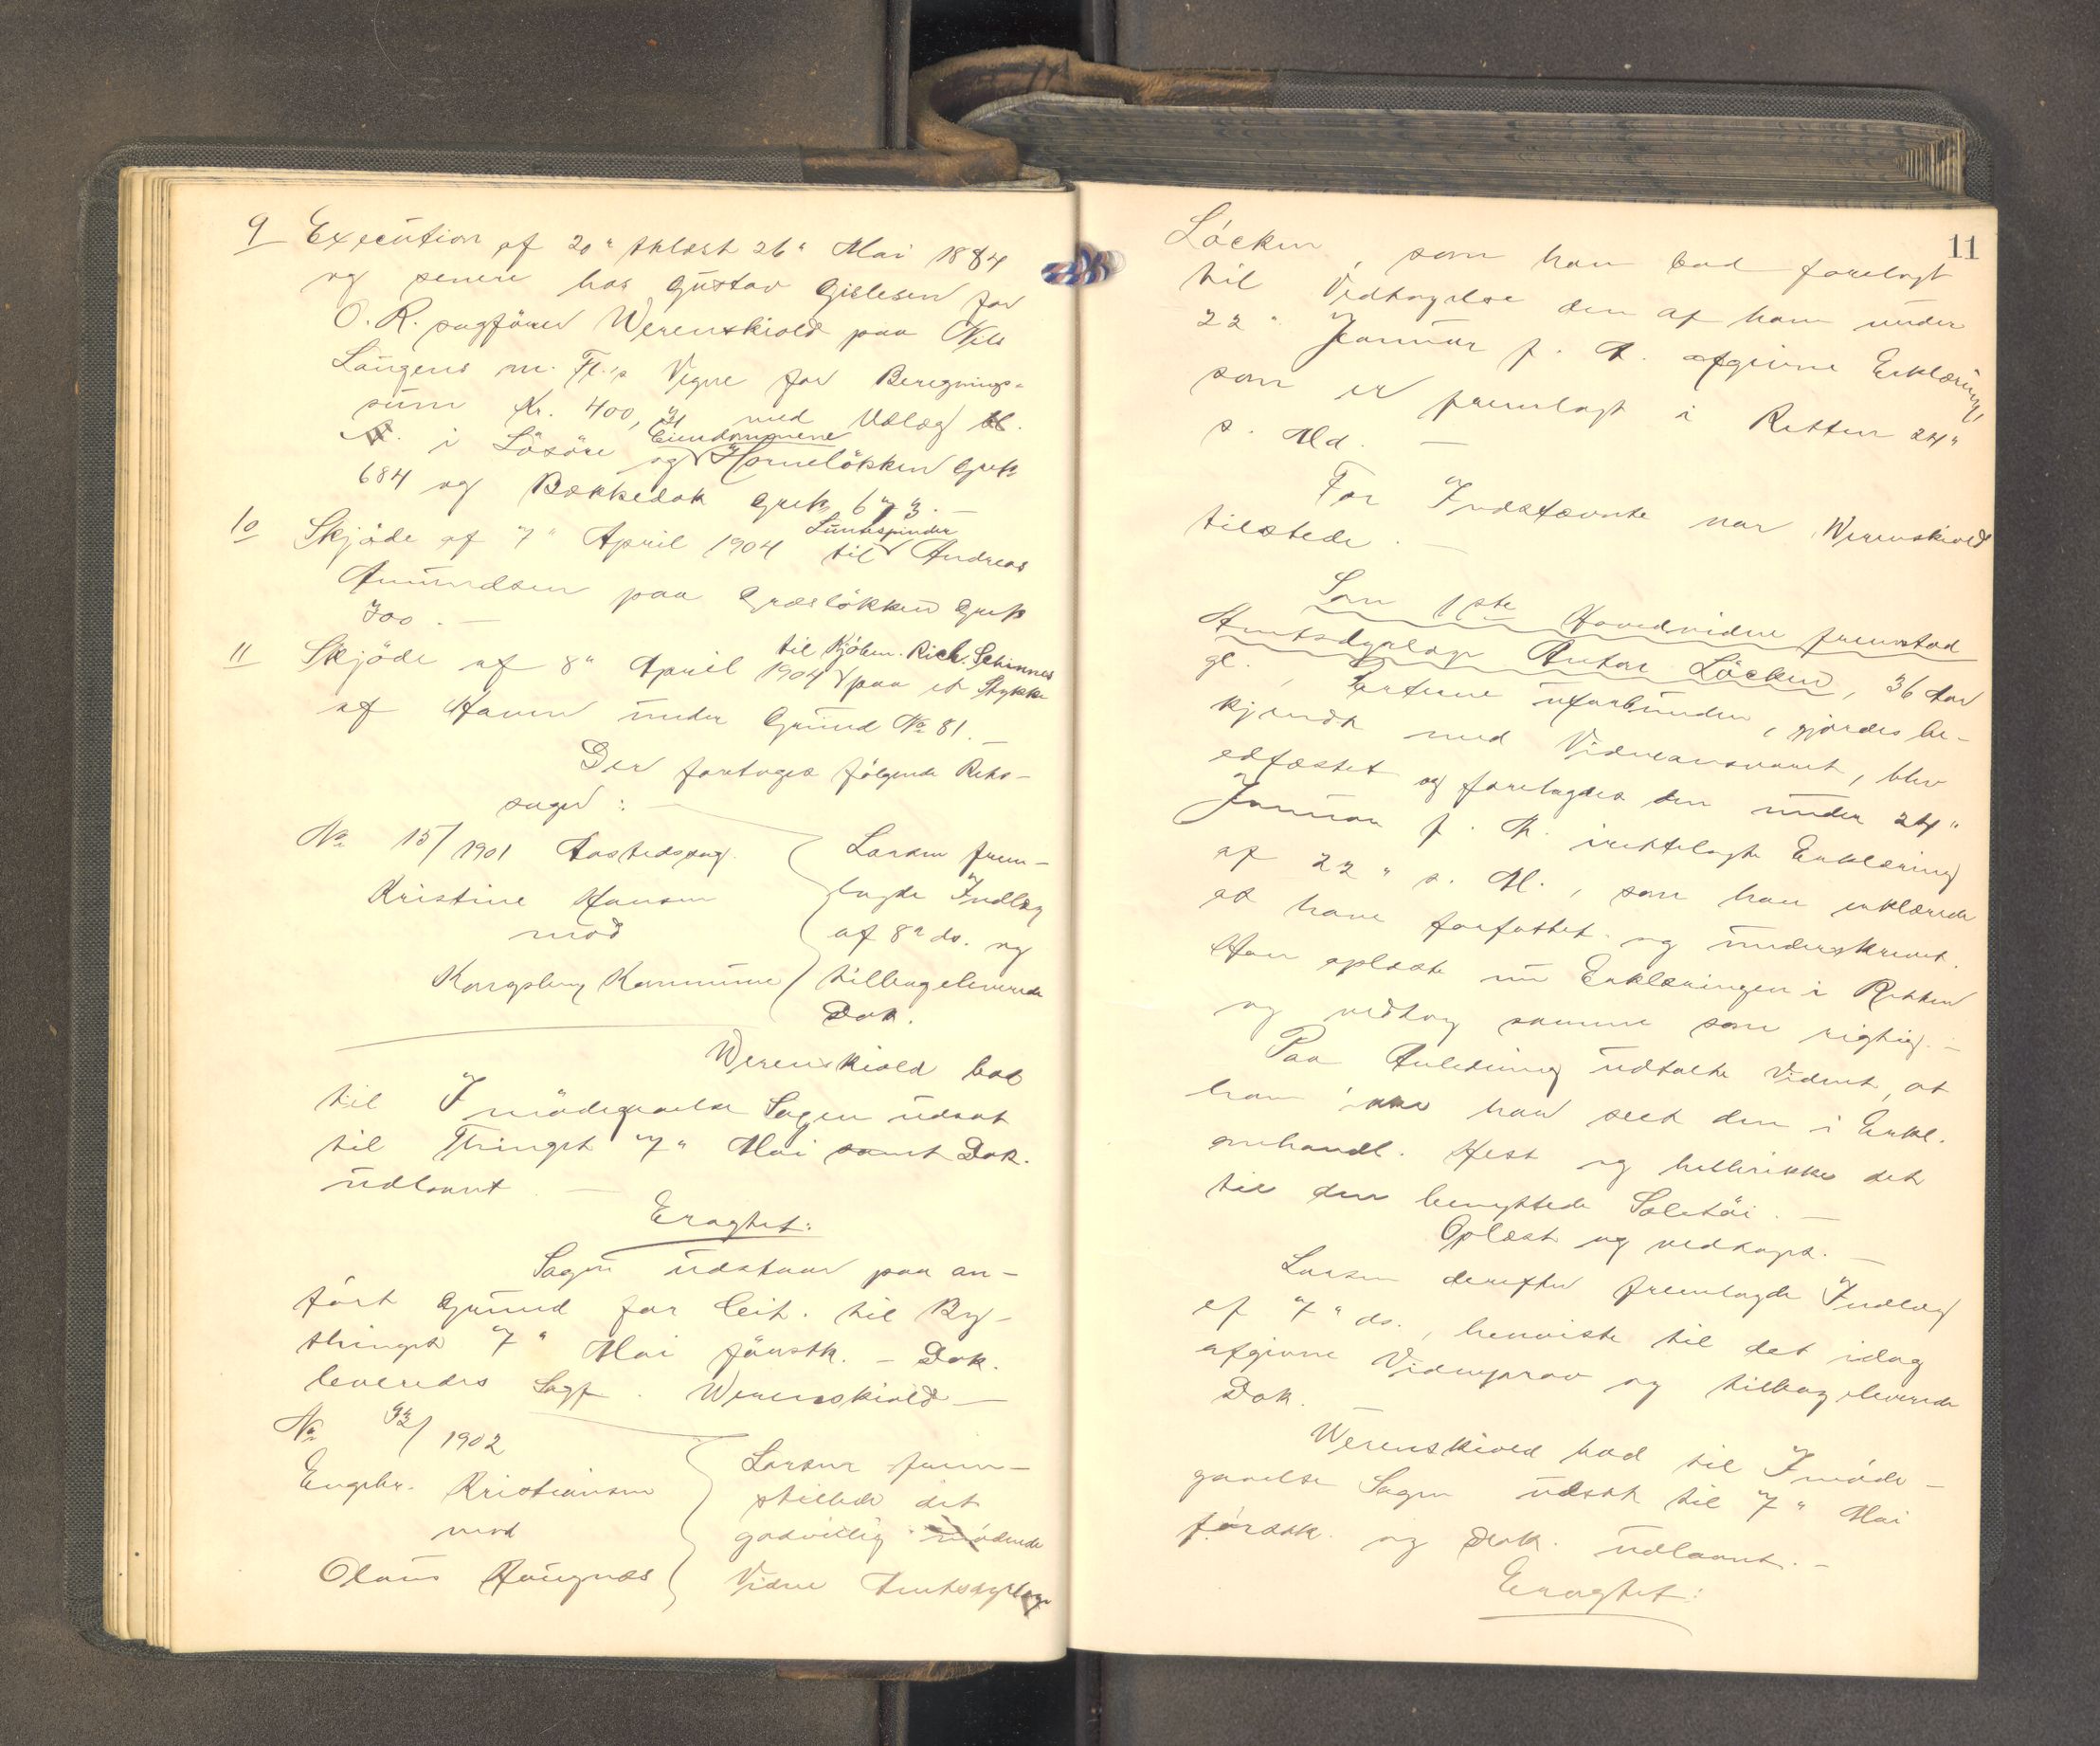 9 Execution af 20" thlæst 26" Mai 1884
og senere hos Gustav Gislesen for
O. R. sagförer Werenskiold paa Nils
Langens m. Fl.'s Vegne for Beregnings-
sum Kr. 400,71 med Udlæg
i Lösöre og Eiendommene Horneløkken Grek
684 og Bækkedok Grek 673. —
10 Skjöde af 7" April 1904 til Luntespinder Andreas
Amundsen paa Græslökken Grek
700. —
11 Skjöde af 8" April 1904 til Kjöbm. Rich. Schinnes paa et Stykke
af Haven under Grund No 81. —
Der foretoges fölgende Rets-
sager: —
No 15/1901 Aastedssag.
Kristine Hansen
mod
Kongsberg Kommune
Larsen frem-
lagde Indlæg
af 8" ds. og
tilbageleverede
Dok.
Werenskiold bad
til Imödegaaelse Sagen udsat
til Thinget 7" Mai samt Dok.
udlaant. —
Eragtet:
Sagen udstaar paa an-
fört Grund for Ceit. til By-
thinget 7" Mai förstk. — Dok.
leveredes Sagf. Werenskiold —
No 92/1902
Engebr. Kristiansen
mod
Olaus Haugnæs
Larsen frem-
stillede det
godvillig mödende
Vidne Amtsdyrlæge
11
Löcken, som han bad forelagt
til Vedtagelse den af ham under
22" Januar f. A. afgivne Erklæring,
som er fremlagt i Retten 24"
s. Md. —
For Indstævnte var Werenskiold
tilstede. —
Som 1ste Hovedvidne fremstod
Amtsdyrlæge Anton Löcken, 36 Aar
gl., Parterne uforbunden, gjordes be-
kjendt med Vidneansvaret, blev
edfæstet og forelagdes den under 24"
Januar f. A. irettelagte Erklæring
af 22" s. M., som han erklærede
at have forfattet og underskrevet.
Han oplæste nu Erklæringen i Retten
og vedtog samme som rigtig. —
Paa Anledning udtalte Vidnet, at
han ikke har seet den i Erkl.
omhandl. Hest og hellerikke det
til den benyttede Seletöi. —
Oplæst og vedtaget. —
Larsen derefter fremlagde Indlæg
af 7" ds., henviste til det idag
afgivne Vidneprov og tilbageleverede
Dok.
Werenskiold bad til Imöde-
gaaelse Sagen udsat til 7" Mai
förstk. og Dok. udlaant. —
Eragtet: